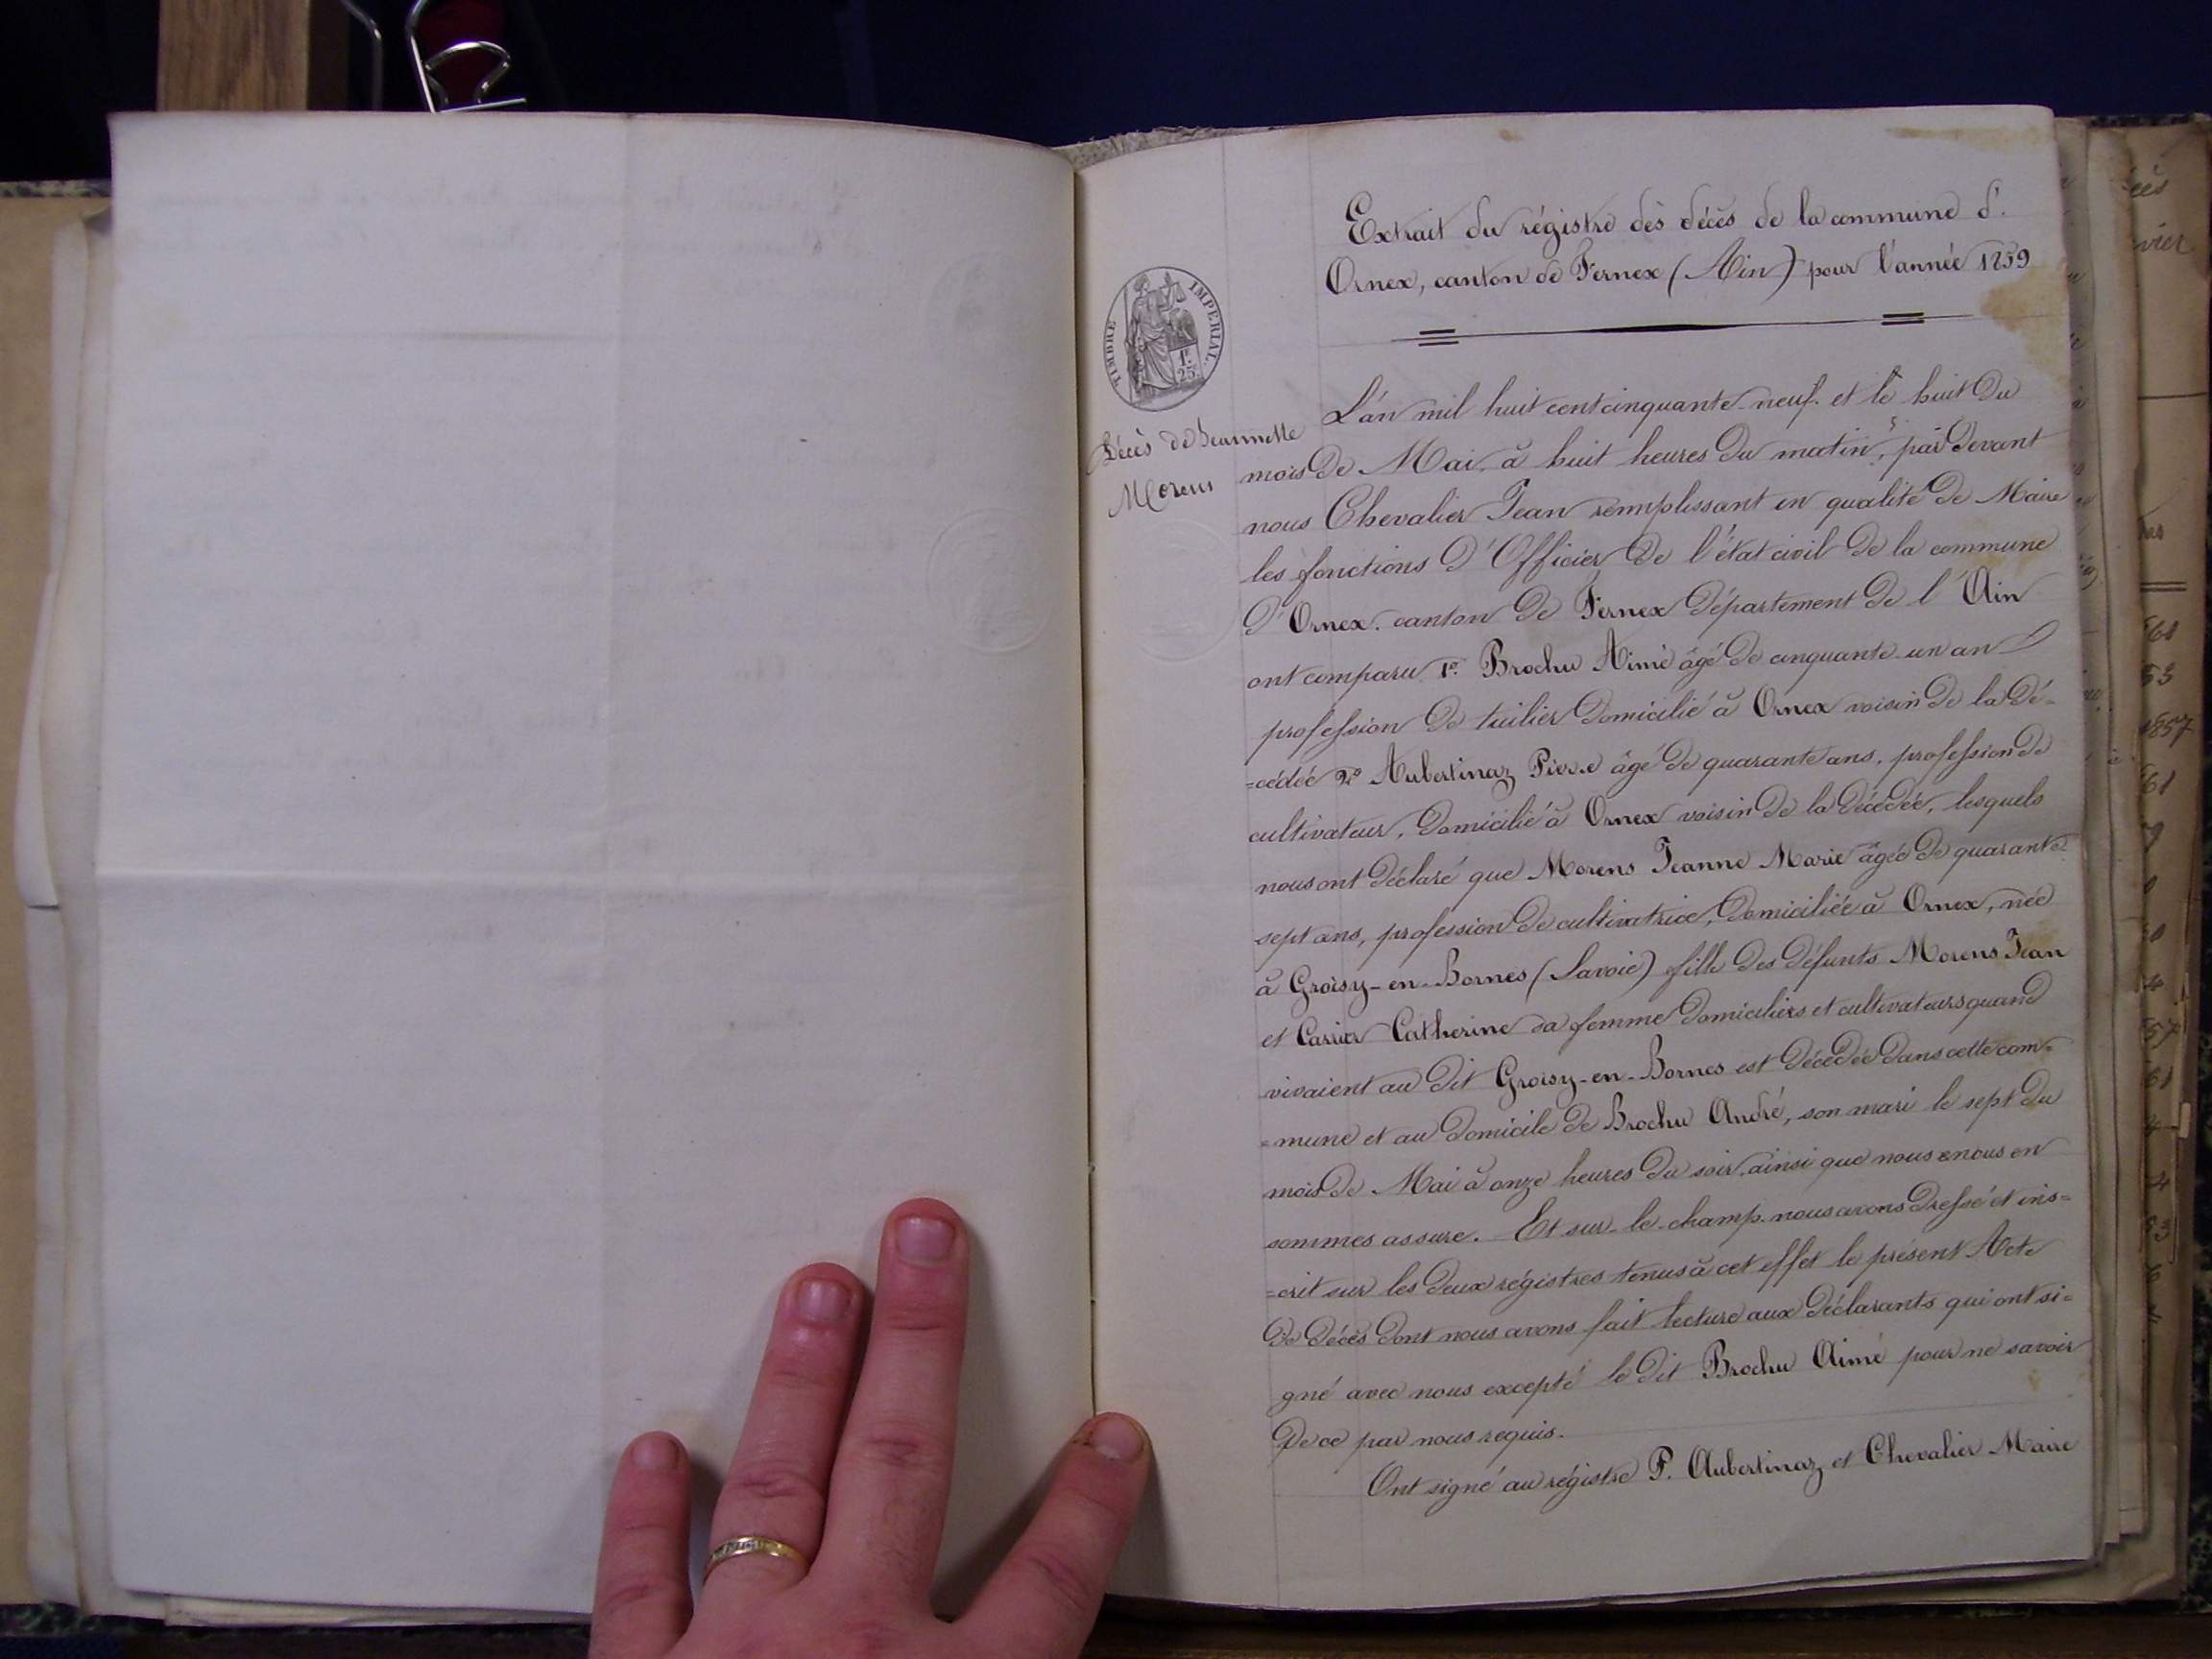 Extrait du régistre des décès de la commune d'
Ornex, canton de Fernex (Ain) pour l'année 1859
TIMBRE IMPERIAL
1F.
25
Décès de Jeannette
Morens
L'an mil huit cent cinquante-neuf. et le huit du
mois de Mai, à huit heures du matin, par devant
nous Chevalier Jean remplissant en qualité de Maire
les fonctions d'Officier de l'état civil de la commune
d'Ornex. canton de Fernex département de l'Ain
ont comparu 1º. Brochu Aimé âgé de cinquante-un an
profession de tuilier domicilié à Ornex voisin de la dé-
=cédée 2º Aubertinaz Pierre âgé de quarante ans, profession de
cultivateur, domicilié à Ornex voisin de la décédée, lesquels
nous ont déclaré que Morens Jeanne Marie âgée de quarante-
sept ans, profession de cultivatrice, domiciliée à Ornex, née
à Groisy-en-Bornes (Savoie) fille des défunts Morens Jean
et Carrier Catherine sa femme domiciliés et cultivateurs quand
vivaient au dit Groisy-en-Bornes est décédée dans cette com-
=mune et au domicile de Brochu André, son mari le sept du
mois de Mai à onze heures du soir, ainsi que nous en
sommes assure. Et sur-le-champ. nous avons dressé et ins=
=crit sur les deux régistres tenus à cet effet le présent Acte
de décès dont nous avons fait lecture aux déclarants qui ont si=
gné avec nous excepté le dit Brochu Aimé pour ne savoir
de ce par nous requis.
Ont signé au régistre P. Aubertinaz et Chevalier Maire